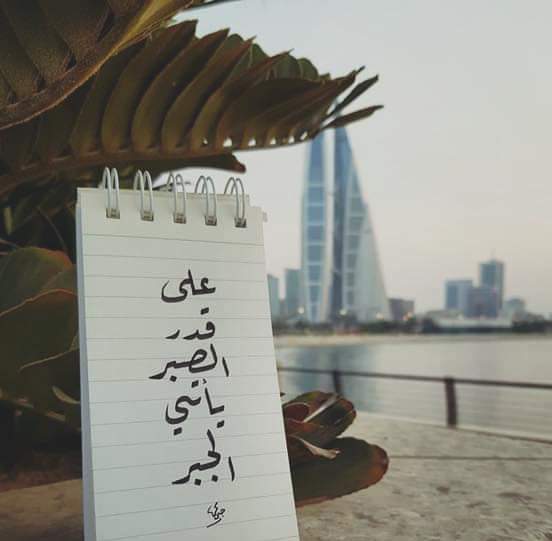 على
قدر
الصبر
يأتي
الجبر